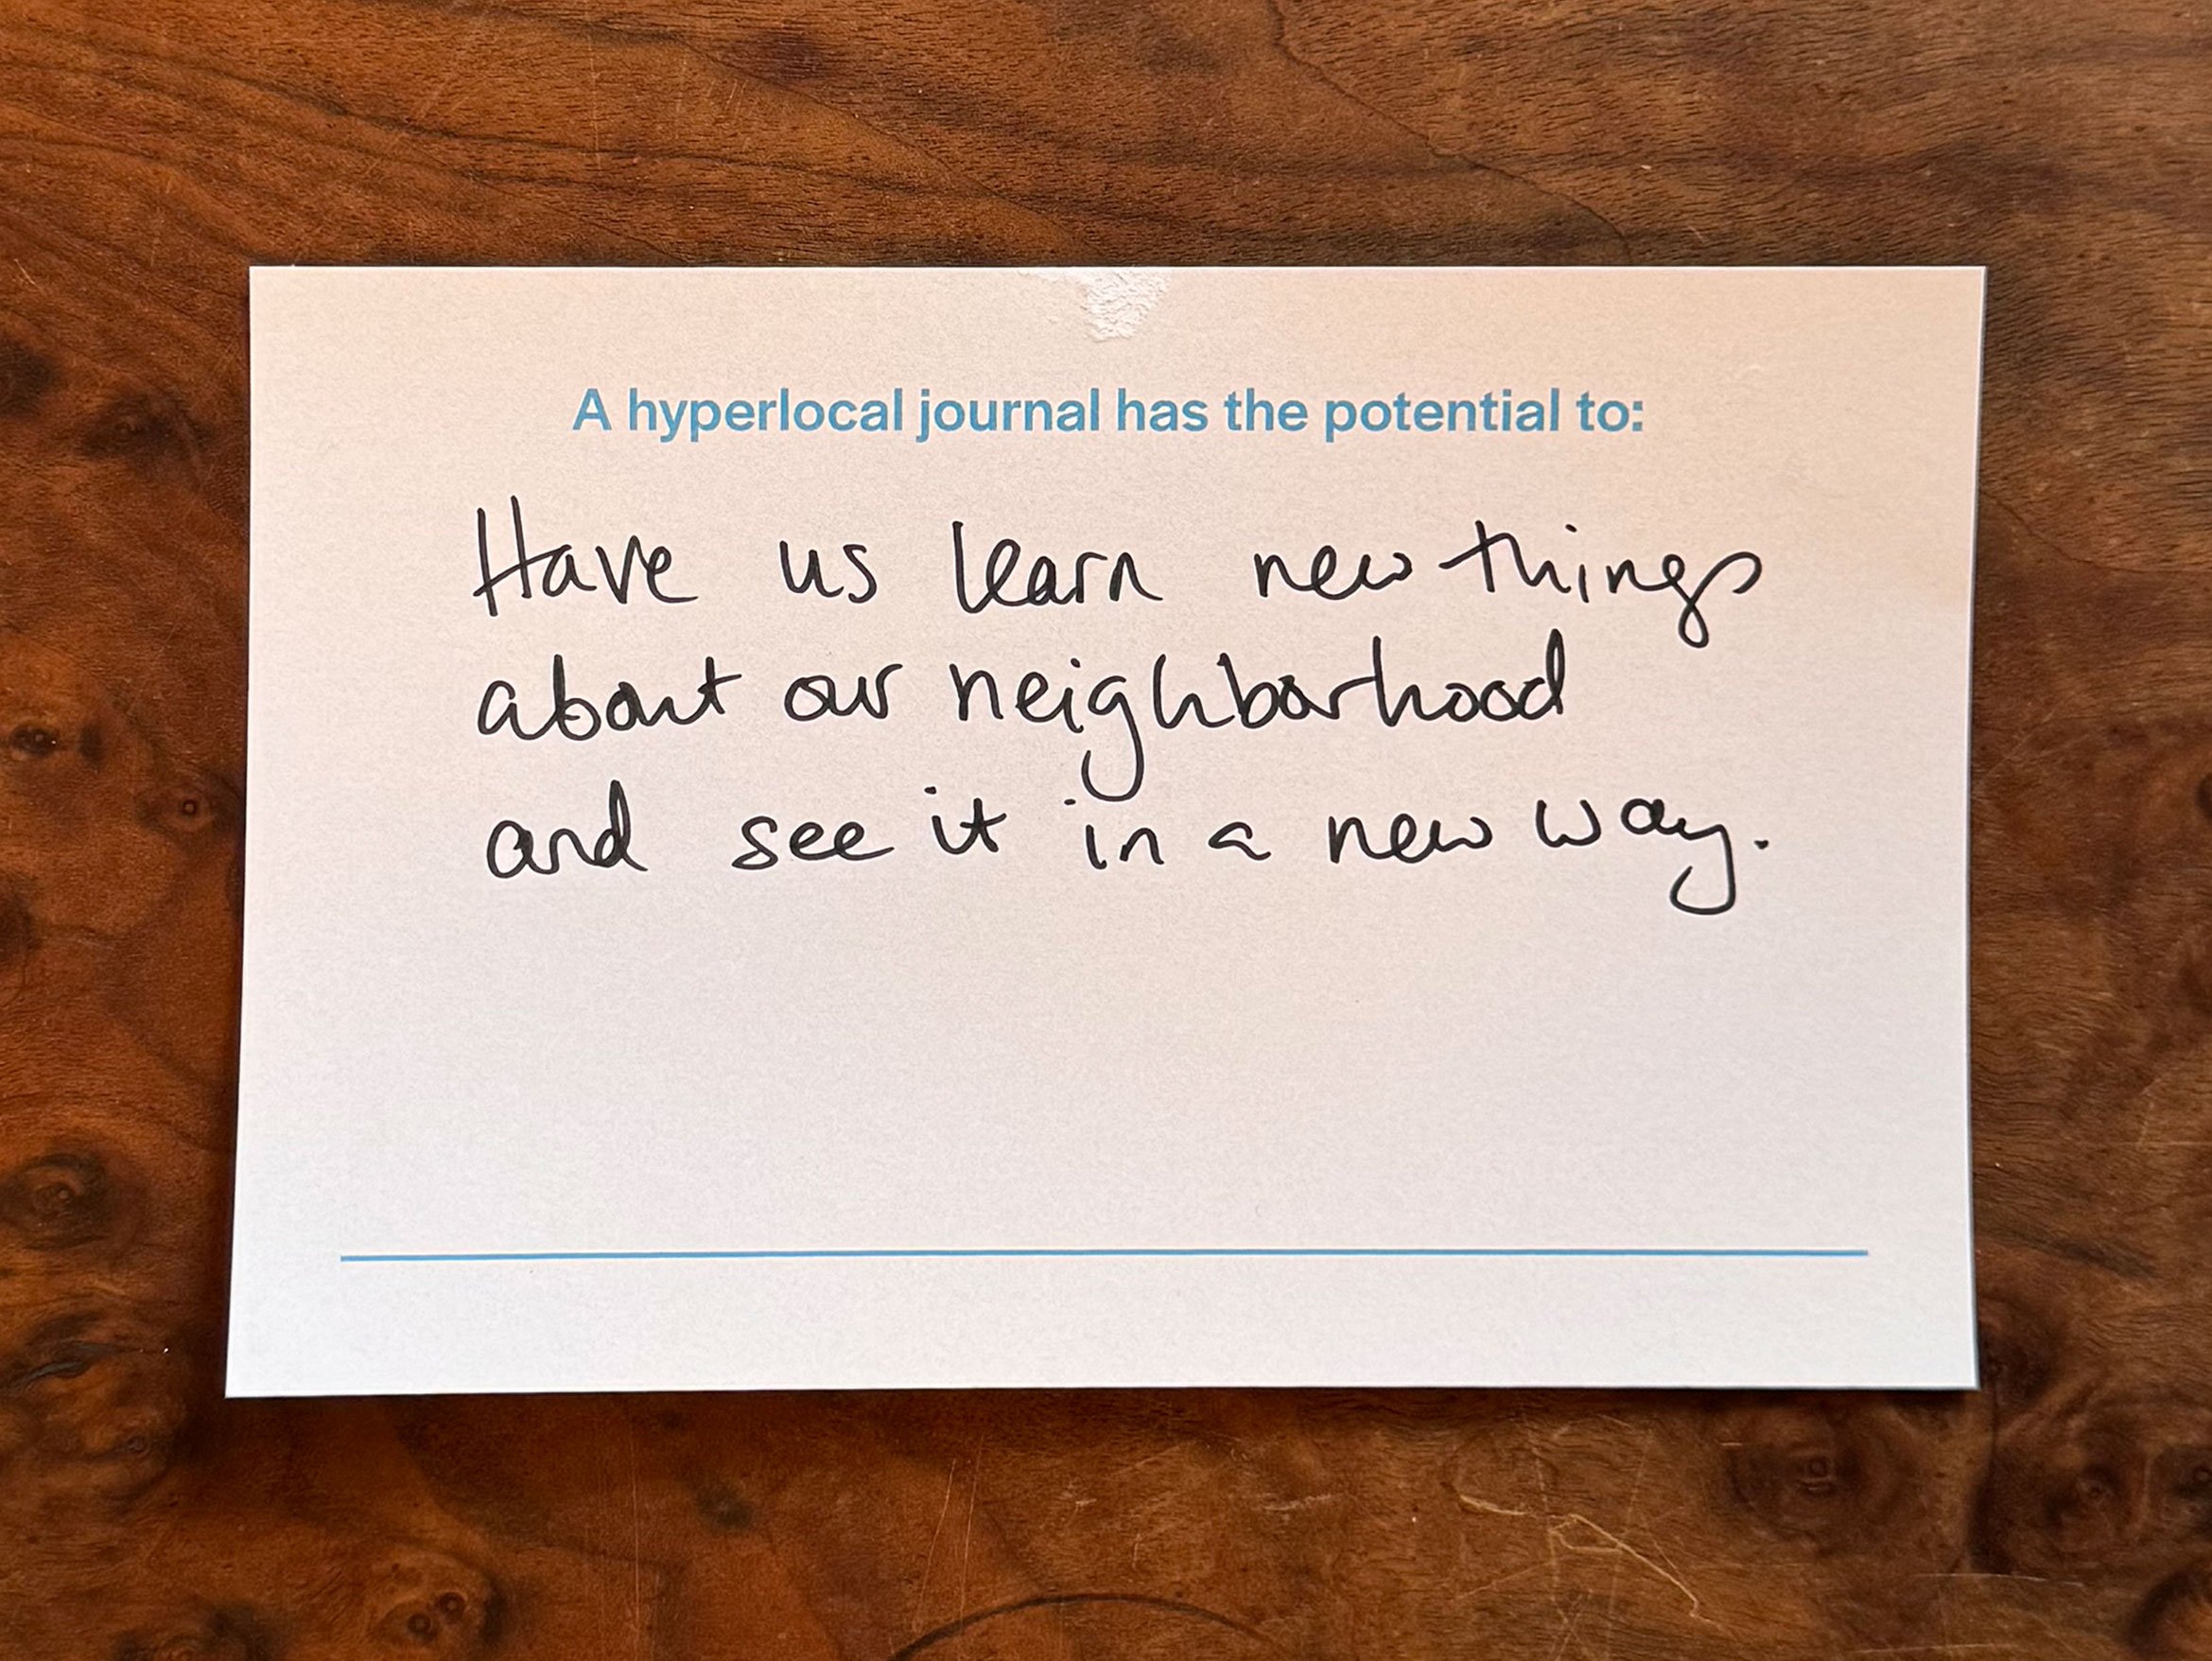 A hyperlocal journal has the potential to:
Have us learn new things
about our neighborhood
and see it in a new way.